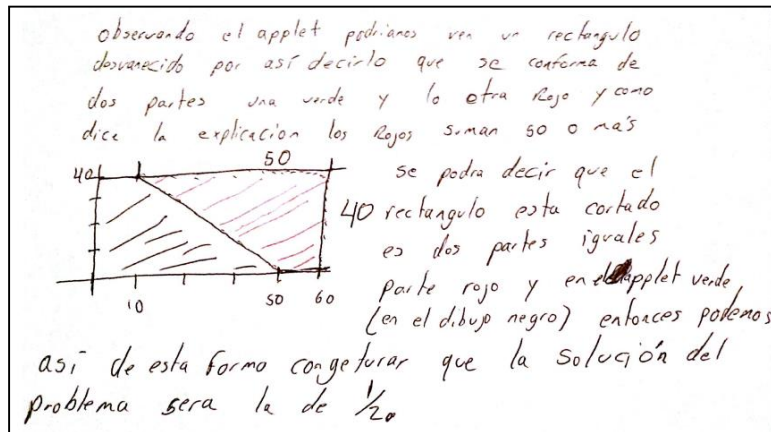 observando el applet podriamos ver un rectangulo
desvanecido por así decirlo que se conforma de
dos partes una verde y lo otra Rojo y como
dice la explicacion los Rojos suman 50 o más
50
40
se podra decir que el
40 rectangulo esta cortado
es dos partes iguales
parte rojo y en applet verde
10 50 60
(en el dibujo negro) entonces podemos
así de esta forma congeturar que la solución del
problema sera la de 1/2.